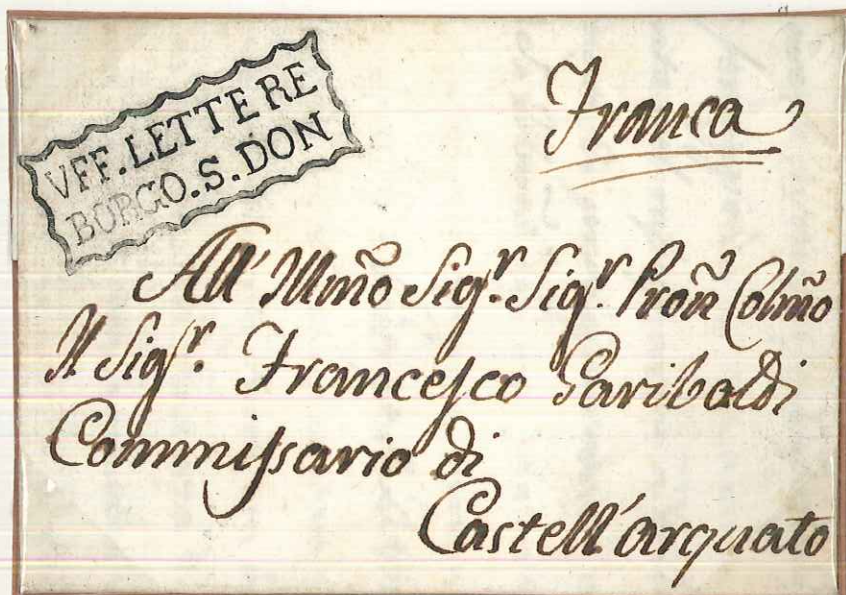 VFF. LETTERE
BORGO. S. DON
Franca
All' Illm̃o Sigr. Sigr. Proñe Colm̃o
Il Sigr. Francesco Garibaldi
Commissario di
Castell'arquato